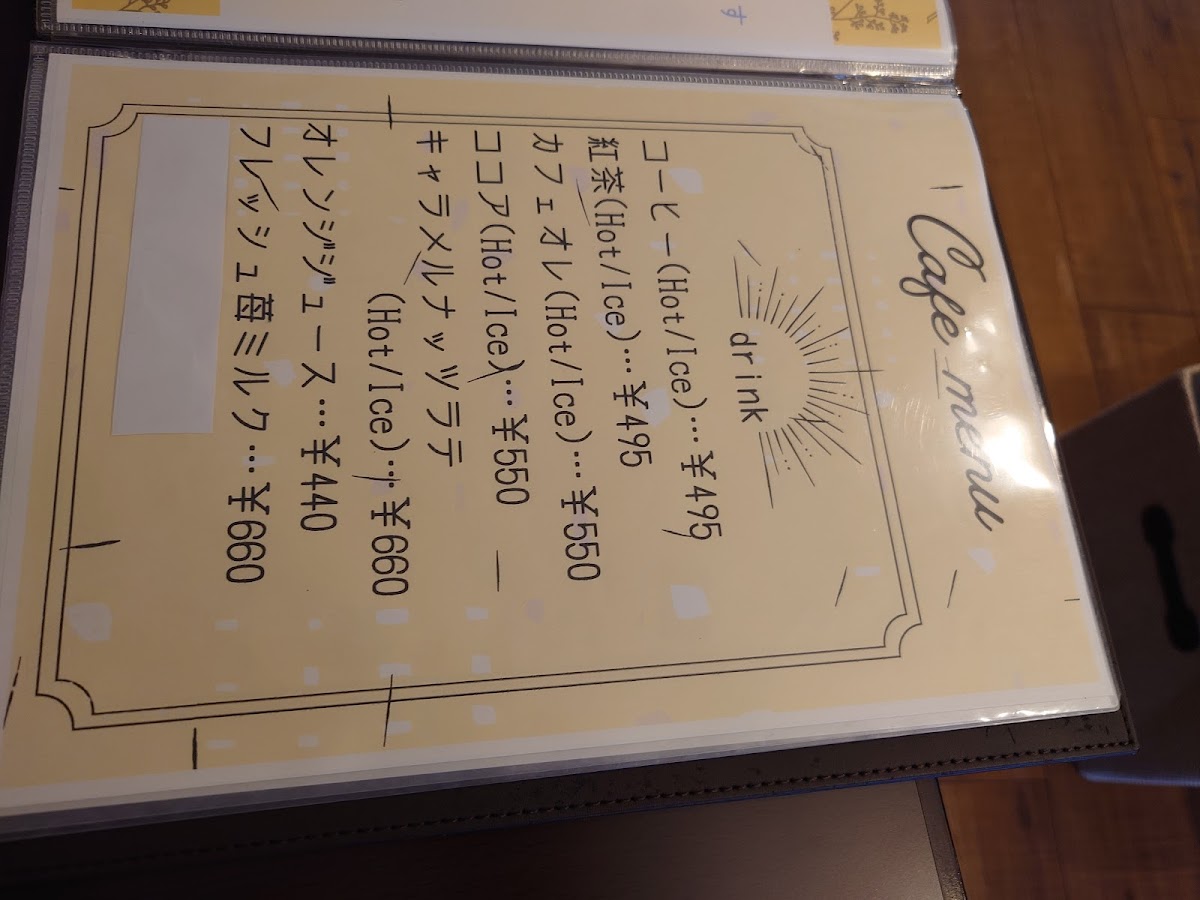 Cafe menu
drink
コーヒー(Hot/Ice)…¥495
紅茶(Hot/Ice)…¥495
カフェオレ(Hot/Ice)…¥550
ココア(Hot/Ice)…¥550
キャラメルナッツラテ
(Hot/Ice)…¥660
オレンジジュース…¥440
フレッシュ苺ミルク…¥660
す